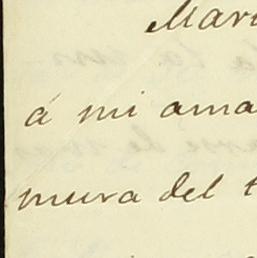 Mari
á mi ama
mura del t